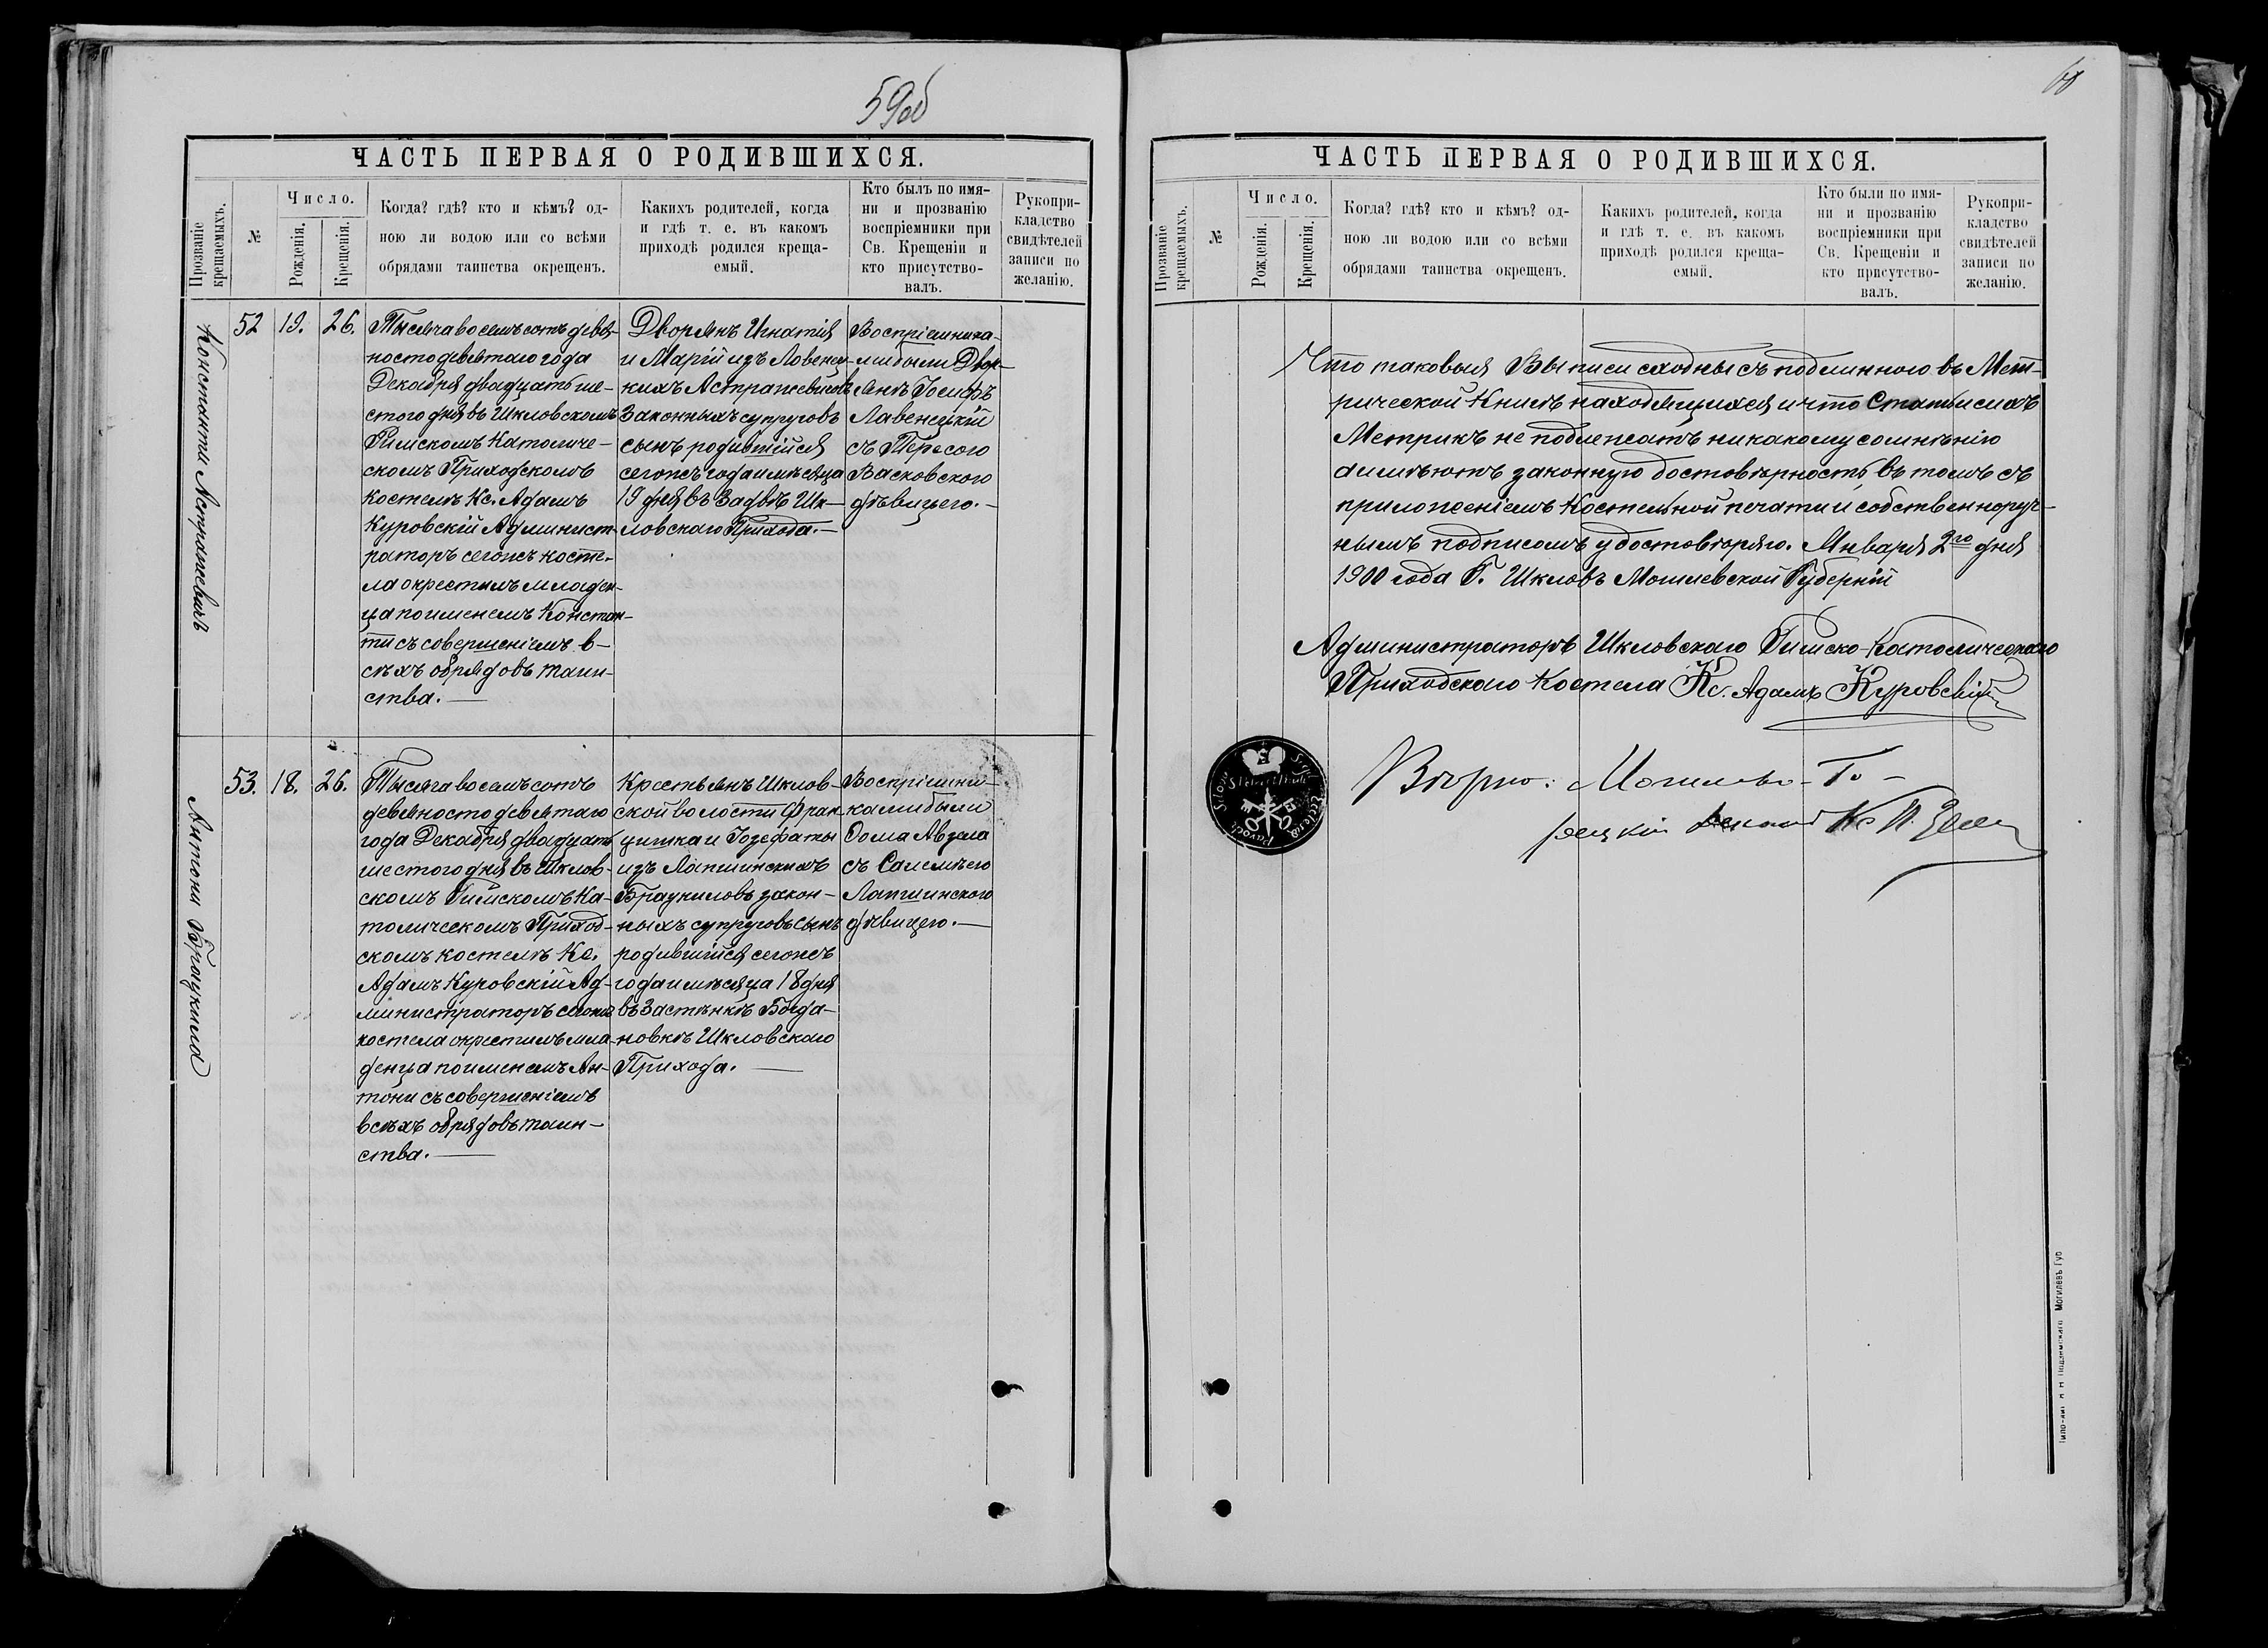 59об
ЧАСТЬ ПЕРВАЯ О РОДИВШИХСЯ.
Прозваніе крещаемыхъ.
№
Число.
Рожденія.
Крещенія.
Когда? гдѣ? кто и кѣмъ? од-
ною ли водою или со всѣми
обрядами таинства окрещенъ.
Какихъ родителей, когда
и гдѣ т. е. въ какомъ
приходѣ родился креща-
емый.
Кто былъ по имя-
ни и прозванію
воспріемники при
Св. Крещеніи и
кто присутство-
валъ.
Рукопри-
кладство
свидѣтелей
записи по
желанію.
Константи Астрашевичъ
52
19.
26.
Тысяча восемьсотъ девя-
ностодевятаго года
Декабря двадцать ше-
стого дня въ Шкловскомъ
Римскомъ Католиче-
скомъ Приходскомъ
костелѣ Кс. Адамъ
Куровскій Админист-
раторъ сегожъ косте-
ла окрестилъ младен-
ца по именемъ Констан-
ти съ совершеніемъ в-
сѣхъ обрядовъ таин-
ства.—
Дворянъ Игнатія
и Маріи изъ Ловенец-
кихъ Астрашевичовъ
Законныхъ супруговъ
сынъ родившійся
сегожъ года и мѣсяца
19 дня въ Шк-
ловскаго Прихода.—
Воспріемника-
ми были Двор-
янъ Іосифъ
Лавенецкій
съ Тересою
Васковского
дѣвицею.—
Антони Браукила
53.
18.
26.
Тысяча восемьсотъ
девяностодевятаго
года Декабря двадцать
шестого дня въ Шклов-
скомъ Римскомъ Ка-
толическомъ Приход-
скомъ костелѣ Кс.
Адамъ Куровскій Ад-
министраторъ сегожъ
костела окрестилъ мла-
денца по именемъ Ан-
тони съ совершеніемъ
всѣхъ обрядовъ таин-
ства.—
Крестьянъ Шклов-
ской волости Фран-
цишка и Іозефаты
изъ Лапшинскихъ
Браукиловъ закон-
ныхъ супруговъ сынъ
родившійся сегожъ
года и мѣсяца 18 дня
въ Застѣнкѣ Богда-
новкѣ Шкловскаго
Прихода.—
Воспріемни-
ками были
Ѳома Авзела
съ
Лапшинского
дѣвицею.—
60
ЧАСТЬ ПЕРВАЯ О РОДИВШИХСЯ.
Прозваніе крещаемыхъ.
№
Число.
Рожденія.
Крещенія.
Когда? гдѣ? кто и кѣмъ? од-
ною ли водою или со всѣми
обрядами таинства окрещенъ.
Какихъ родителей, когда
и гдѣ т. е. въ какомъ
приходѣ родился креща-
емый.
Кто были по имя-
ни и прозванію
воспріемники при
Св. Крещеніи и
кто присутство-
валъ.
Рукопри-
кладство
свидѣтелей
записи по
желанію.
Что таковыя Выписи сходны съ подлинного въ Мет-
рической Книгѣ находящихся и что Статьи сихъ
Метрикъ не подлежатъ никакому сомнѣнію
а имѣютъ законную достовѣрность въ томъ съ
приложеніемъ Костельной печати и собственноруч-
нымъ подписомъ удостовѣряю. Января 2го дня
1900 года Г. Шкловъ Могилевской Губерніи
Администраторъ Шкловскаго Римско-Католическаго
Приходского Костела Кс. Адамъ Куровскій
Вѣрно: Могилево-Го-
рецкій Деканъ Кс
Могилевъ Губ